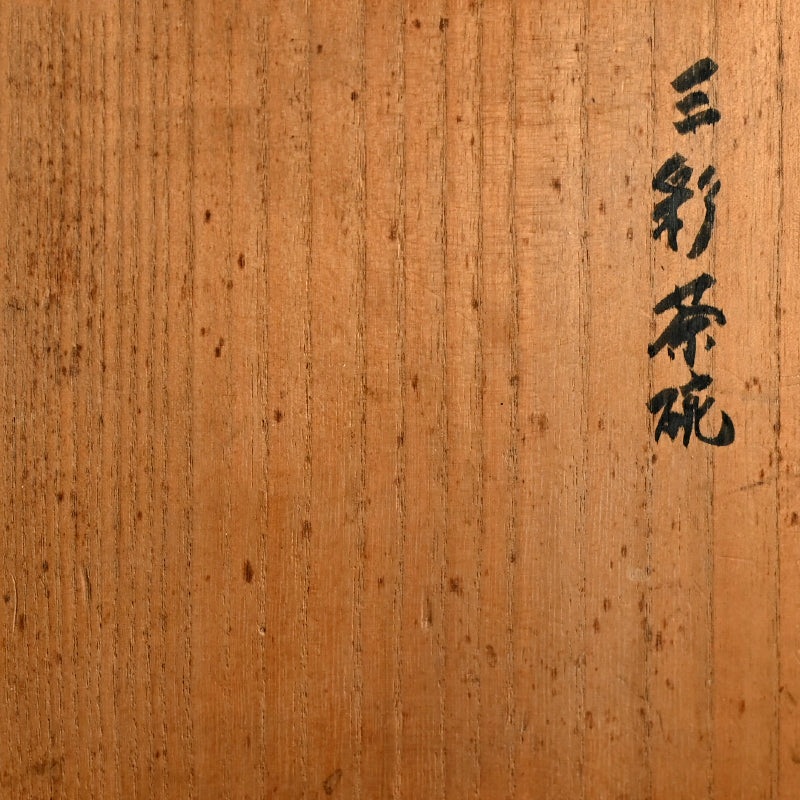 三彩茶碗